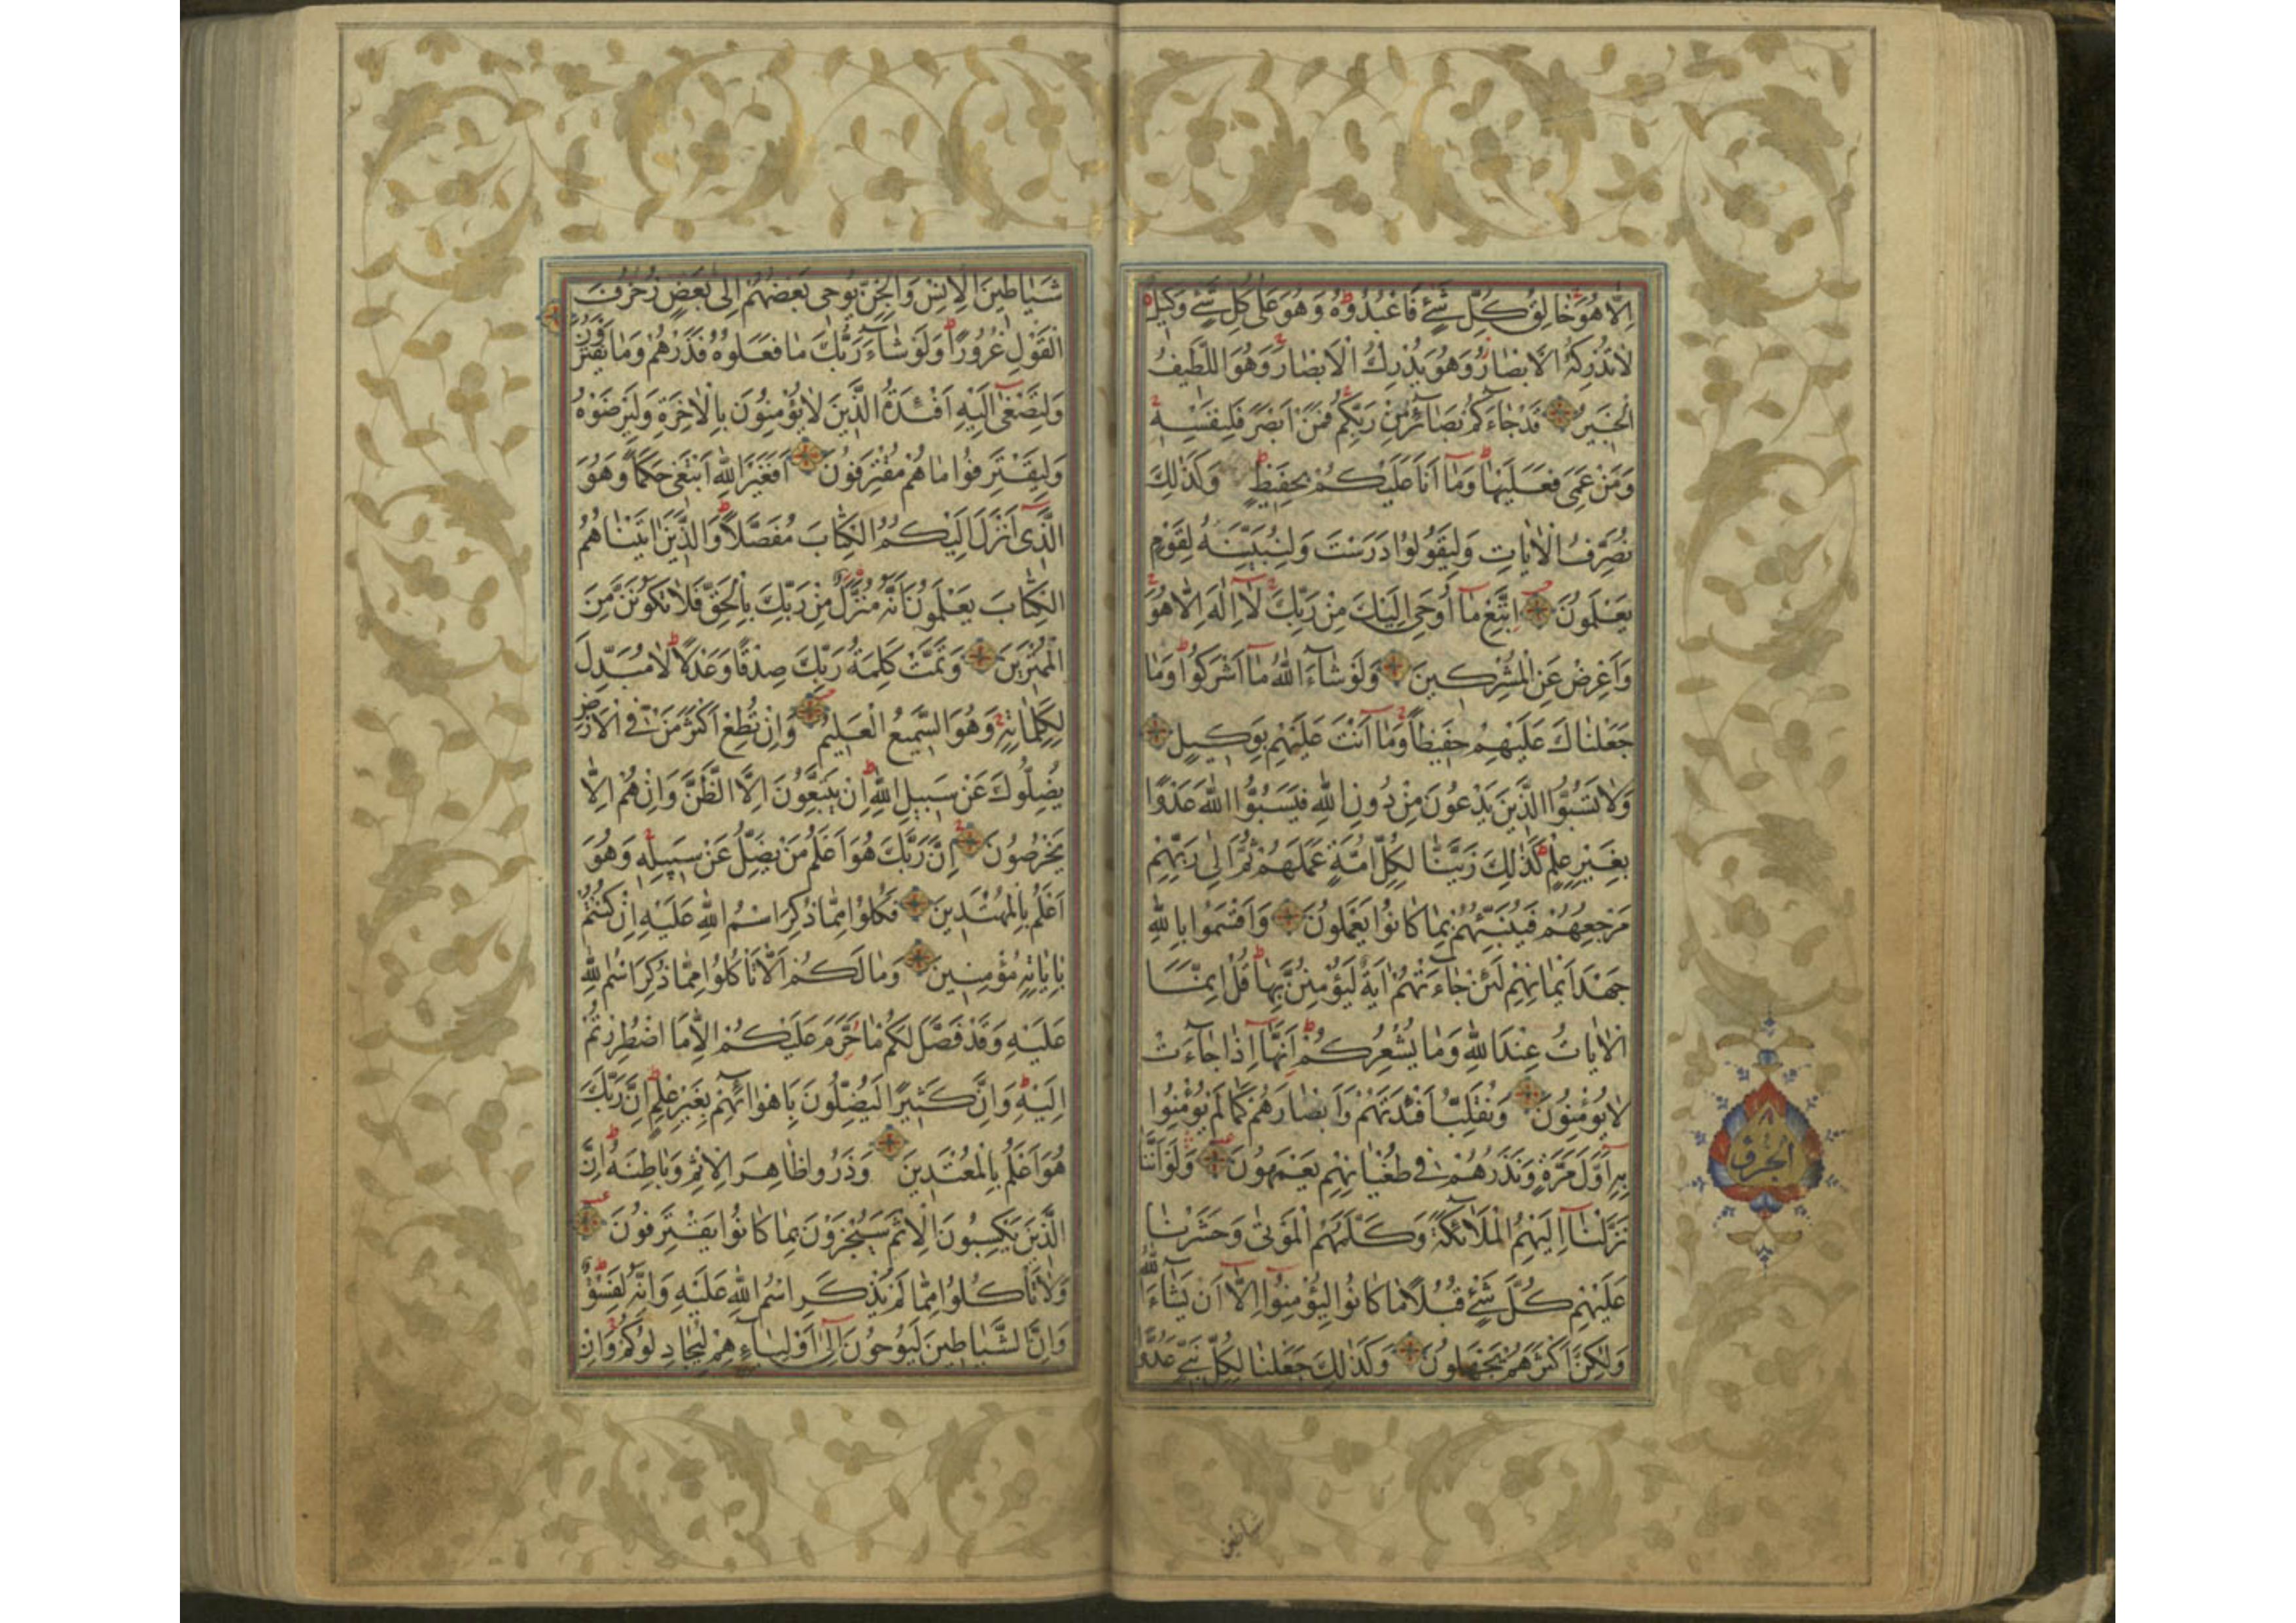 اِلَّا هُوَ خَالِقُ كُلِّ شَيْءٍ فَاعْبُدُوهُ وَهُوَ عَلٰى كُلِّ شَيْءٍ وَكِيلٌ
لَا تُدْرِكُهُ الْاَبْصَارُ وَهُوَ يُدْرِكُ الْاَبْصَارَ وَهُوَ اللَّطِيفُ
الْخَبِيرُ قَدْ جَاءَكُمْ بَصَائِرُ مِنْ رَبِّكُمْ فَمَنْ اَبْصَرَ فَلِنَفْسِهِ
وَمَنْ عَمِيَ فَعَلَيْهَا وَمَا اَنَا عَلَيْكُمْ بِحَفِيظٍ وَكَذٰلِكَ
نُصَرِّفُ الْاٰيَاتِ وَلِيَقُولُوا دَرَسْتَ وَلِنُبَيِّنَهُ لِقَوْمٍ
يَعْلَمُونَ اِتَّبِعْ مَا اُوحِيَ اِلَيْكَ مِنْ رَبِّكَ لَا اِلٰهَ اِلَّا هُوَ
وَاَعْرِضْ عَنِ الْمُشْرِكِينَ وَلَوْ شَاءَ اللّٰهُ مَا اَشْرَكُوا وَمَا
جَعَلْنَاكَ عَلَيْهِمْ حَفِيظًا وَمَا اَنْتَ عَلَيْهِمْ بِوَكِيلٍ
وَلَا تَسُبُّوا الَّذِينَ يَدْعُونَ مِنْ دُونِ اللّٰهِ فَيَسُبُّوا اللّٰهَ عَدْوًا
بِغَيْرِ عِلْمٍ كَذٰلِكَ زَيَّنَّا لِكُلِّ اُمَّةٍ عَمَلَهُمْ ثُمَّ اِلٰى رَبِّهِمْ
مَرْجِعُهُمْ فَيُنَبِّئُهُمْ بِمَا كَانُوا يَعْمَلُونَ وَاَقْسَمُوا بِاللّٰهِ
جَهْدَ اَيْمَانِهِمْ لَئِنْ جَاءَتْهُمْ اٰيَةٌ لَيُؤْمِنُنَّ بِهَا قُلْ اِنَّمَا
الْاٰيَاتُ عِنْدَ اللّٰهِ وَمَا يُشْعِرُكُمْ اَنَّهَا اِذَا جَاءَتْ
لَا يُؤْمِنُونَ وَنُقَلِّبُ اَفْئِدَتَهُمْ وَاَبْصَارَهُمْ كَمَا لَمْ يُؤْمِنُوا
بِهِ اَوَّلَ مَرَّةٍ وَنَذَرُهُمْ فِي طُغْيَانِهِمْ يَعْمَهُونَ وَلَوْ اَنَّنَا
نَزَّلْنَا اِلَيْهِمُ الْمَلَائِكَةَ وَكَلَّمَهُمُ الْمَوْتٰى وَحَشَرْنَا
عَلَيْهِمْ كُلَّ شَيْءٍ قُبُلًا مَا كَانُوا لِيُؤْمِنُوا اِلَّا اَنْ يَشَاءَ اللّٰهُ
وَلٰكِنَّ اَكْثَرَهُمْ يَجْهَلُونَ وَكَذٰلِكَ جَعَلْنَا لِكُلِّ نَبِيٍّ عَدُوًّا
شياطين
الجزو
٨
شَيَاطِينَ الْاِنْسِ وَالْجِنِّ يُوحِي بَعْضُهُمْ اِلٰى بَعْضٍ زُخْرُفَ
الْقَوْلِ غُرُورًا وَلَوْ شَاءَ رَبُّكَ مَا فَعَلُوهُ فَذَرْهُمْ وَمَا يَفْتَرُونَ
وَلِتَصْغٰى اِلَيْهِ اَفْئِدَةُ الَّذِينَ لَا يُؤْمِنُونَ بِالْاٰخِرَةِ وَلِيَرْضَوْهُ
وَلِيَقْتَرِفُوا مَا هُمْ مُقْتَرِفُونَ اَفَغَيْرَ اللّٰهِ اَبْتَغِي حَكَمًا وَهُوَ
الَّذِي اَنْزَلَ اِلَيْكُمُ الْكِتَابَ مُفَصَّلًا وَالَّذِينَ اٰتَيْنَاهُمُ
الْكِتَابَ يَعْلَمُونَ اَنَّهُ مُنَزَّلٌ مِنْ رَبِّكَ بِالْحَقِّ فَلَا تَكُونَنَّ مِنَ
الْمُمْتَرِينَ وَتَمَّتْ كَلِمَةُ رَبِّكَ صِدْقًا وَعَدْلًا لَا مُبَدِّلَ
لِكَلِمَاتِهِ وَهُوَ السَّمِيعُ الْعَلِيمُ وَاِنْ تُطِعْ اَكْثَرَ مَنْ فِي الْاَرْضِ
يُضِلُّوكَ عَنْ سَبِيلِ اللّٰهِ اِنْ يَتَّبِعُونَ اِلَّا الظَّنَّ وَاِنْ هُمْ اِلَّا
يَخْرُصُونَ اِنَّ رَبَّكَ هُوَ اَعْلَمُ مَنْ يَضِلُّ عَنْ سَبِيلِهِ وَهُوَ
اَعْلَمُ بِالْمُهْتَدِينَ فَكُلُوا مِمَّا ذُكِرَ اسْمُ اللّٰهِ عَلَيْهِ اِنْ كُنْتُمْ
بِاٰيَاتِهِ مُؤْمِنِينَ وَمَا لَكُمْ اَلَّا تَأْكُلُوا مِمَّا ذُكِرَ اسْمُ اللّٰهِ
عَلَيْهِ وَقَدْ فَصَّلَ لَكُمْ مَا حَرَّمَ عَلَيْكُمْ اِلَّا مَا اضْطُرِرْتُمْ
اِلَيْهِ وَاِنَّ كَثِيرًا لَيُضِلُّونَ بِاَهْوَائِهِمْ بِغَيْرِ عِلْمٍ اِنَّ رَبَّكَ
هُوَ اَعْلَمُ بِالْمُعْتَدِينَ وَذَرُوا ظَاهِرَ الْاِثْمِ وَبَاطِنَهُ اِنَّ
الَّذِينَ يَكْسِبُونَ الْاِثْمَ سَيُجْزَوْنَ بِمَا كَانُوا يَقْتَرِفُونَ
وَلَا تَأْكُلُوا مِمَّا لَمْ يُذْكَرِ اسْمُ اللّٰهِ عَلَيْهِ وَاِنَّهُ لَفِسْقٌ
وَاِنَّ الشَّيَاطِينَ لَيُوحُونَ اِلٰى اَوْلِيَاءِهِمْ لِيُجَادِلُوكُمْ وَاِنْ